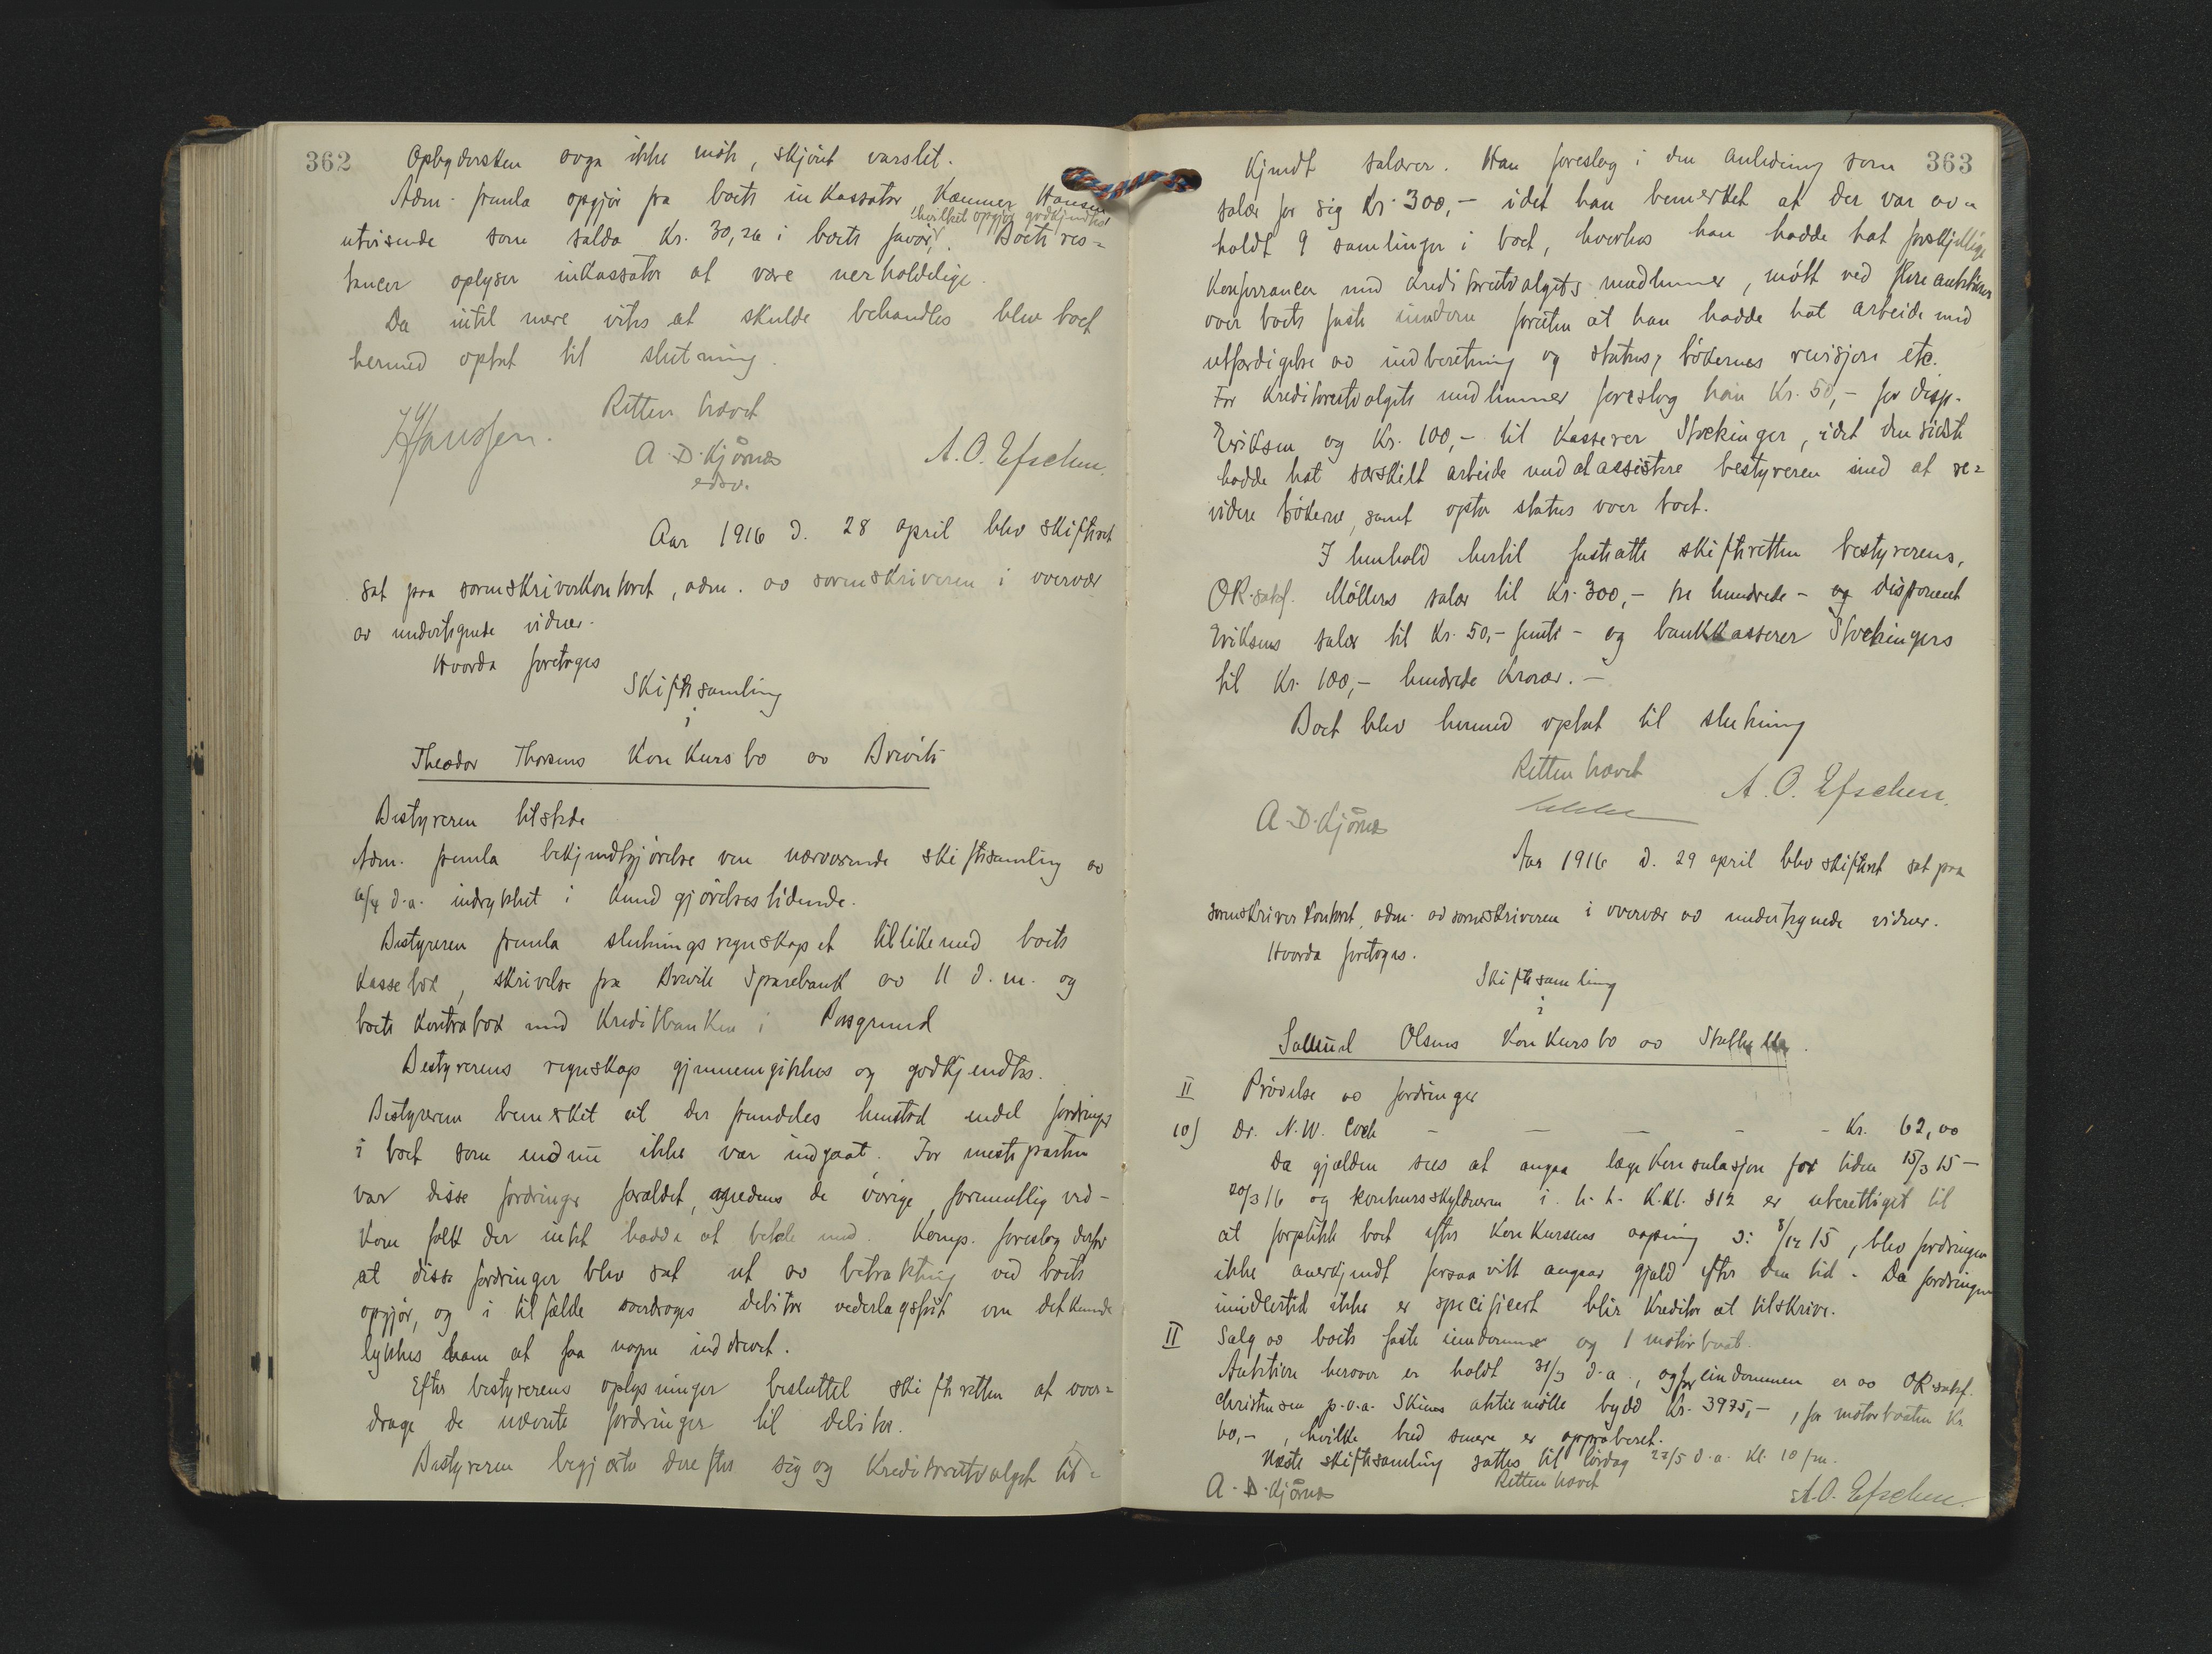 362
Opbyderen ogsaa ikke møtt, skjønt varslet.
Adm. fremla opgjør fra boets inkassator, Kæmner Hansen
hvilket opgjør godkjendtes
utvisende som saldo Kr. 30,26 i boets favør. Boets res-
tancer oplyser inkassator at være uerholdelige.
Da intet mere vites at skulde behandles blev boet
hermed optat til slutning.
Retten hævet
Hanssen.
A. D. Kjørnæs
edsv.
A. O. Efschen.
Aar 1916 d. 28 april blev skifteret
sat paa sorenskriverkontoret, adm. av sorenskriveren i overvær
av undertegnede vidner.
Hvorda foretoges
Skiftesamling
i
Theodor Thorsens Konkursbo av Brevik
Bestyreren tilstede
Adm. fremla bekjendtgjørelse om nærværende skiftesamling av
/4 d.a. indrykket i Kundgjørelsestidende.
Bestyreren fremla slutningsregnskapet tillikemed boets
Kassebok, skrivelse fra Brevik Sparebank av 11 d.m. og
boets Kontrabok med Kreditbanken i Porsgrund
Bestyrerens regnskap gjennemgikkes og godkjendtes.
Bestyreren bemerket at der fremdeles henstod endel fordringer
i boet som endnu ikke var indgaat. For mesteparten
var disse fordringer forældet, medens de øvrige formentlig ved-
kom folk der intet hadde at betale med. Komp. foreslog derfor
at disse fordringer blev sat ut av betraktning ved boets
opgjør, og i tilfælde overdroges debitor vederlagsfrit om det kunde
lykkes ham at faa nogen inddrevet.
Efter bestyrerens oplysninger besluttet skifteretten at over-
drage de nævnte fordringer til debitor.
Bestyreren begjærte derefter sig og Kreditorutvalget til-
363
kjendt salærer. Han foreslog i den anledning som
salær for sig Kr. 300,- idet han bemerket at der var av-
holdt 9 samlinger i boet, hvorhos han hadde hat forskjellige
Konferancer med Kreditorutvalgets medlemmer, møtt ved flere auktioner
over boets faste eiendom foruten at han hadde hat arbeide med
utfærdigelse av indberetning og status, bøkernes revisjon etc.
For Kreditorutvalgets medlemmer foreslog han Kr. 50,- for disp.
Eriksen og Kr. 100,- til Kasserer Stockinger, idet den sidste
hadde hat særskilt arbeide med at assistere bestyreren med at re-
videre bøkerne, samt opta status over boet.
I henhold hertil fastsatte skifteretten bestyrerens,
OR.sakf. Møllers salær til Kr. 300,- tre hundrede - og disponent
Eriksens salær til Kr. 50,- femti - og bankkasserer Stockingers
til Kr. 100,- hundrede Kroner. -
Boet blev hermed optat til slutning
Retten hævet
A. O. Efschen.
A. D. Kjørnæs
Aar 1916 d. 29 april blev skifteret sat paa
sorenskriverkontoret, adm. av sorenskriveren i overvær av undertegnede vidner.
Hvorda foretoges.
Skiftesamling
i
Samuel Olsens Konkursbo av Stathelle.
II Prøvelse av fordringer
10) Dr. N. W. Coch - - - - - Kr. 62,00
Da gjælden sees at angaa lægekonsulasjon for tiden 15/3 15 -
20/3 16 og konkursskyldneren i h. t. K.Kl. §12 er uberettiget til
at forplikte boet efter Konkursens aapning ɔ: 8/12 15, blev fordringen
ikke anerkjendt forsaavitt angaar gjæld efter den tid. Da fordringen
imidlertid ikke er specificert blir Kreditor at tilskrive.
II Salg av boets faste eiendomme og 1 motorbaat.
Auktion herover er holdt 31/3 d.a., og for eiendommen er av OR.sakf.
Christensen p.v.a. Skiens aktiemølle bydd Kr. 3975,-, for motorbaaten Kr.
60,-, hvilke bud senere er approberet.
Næste skiftesamling sattes til lørdag 27/5 d.a. Kl. 10 fm.
Retten hævet
A. D. Kjørnæs
A. O. Efschen.